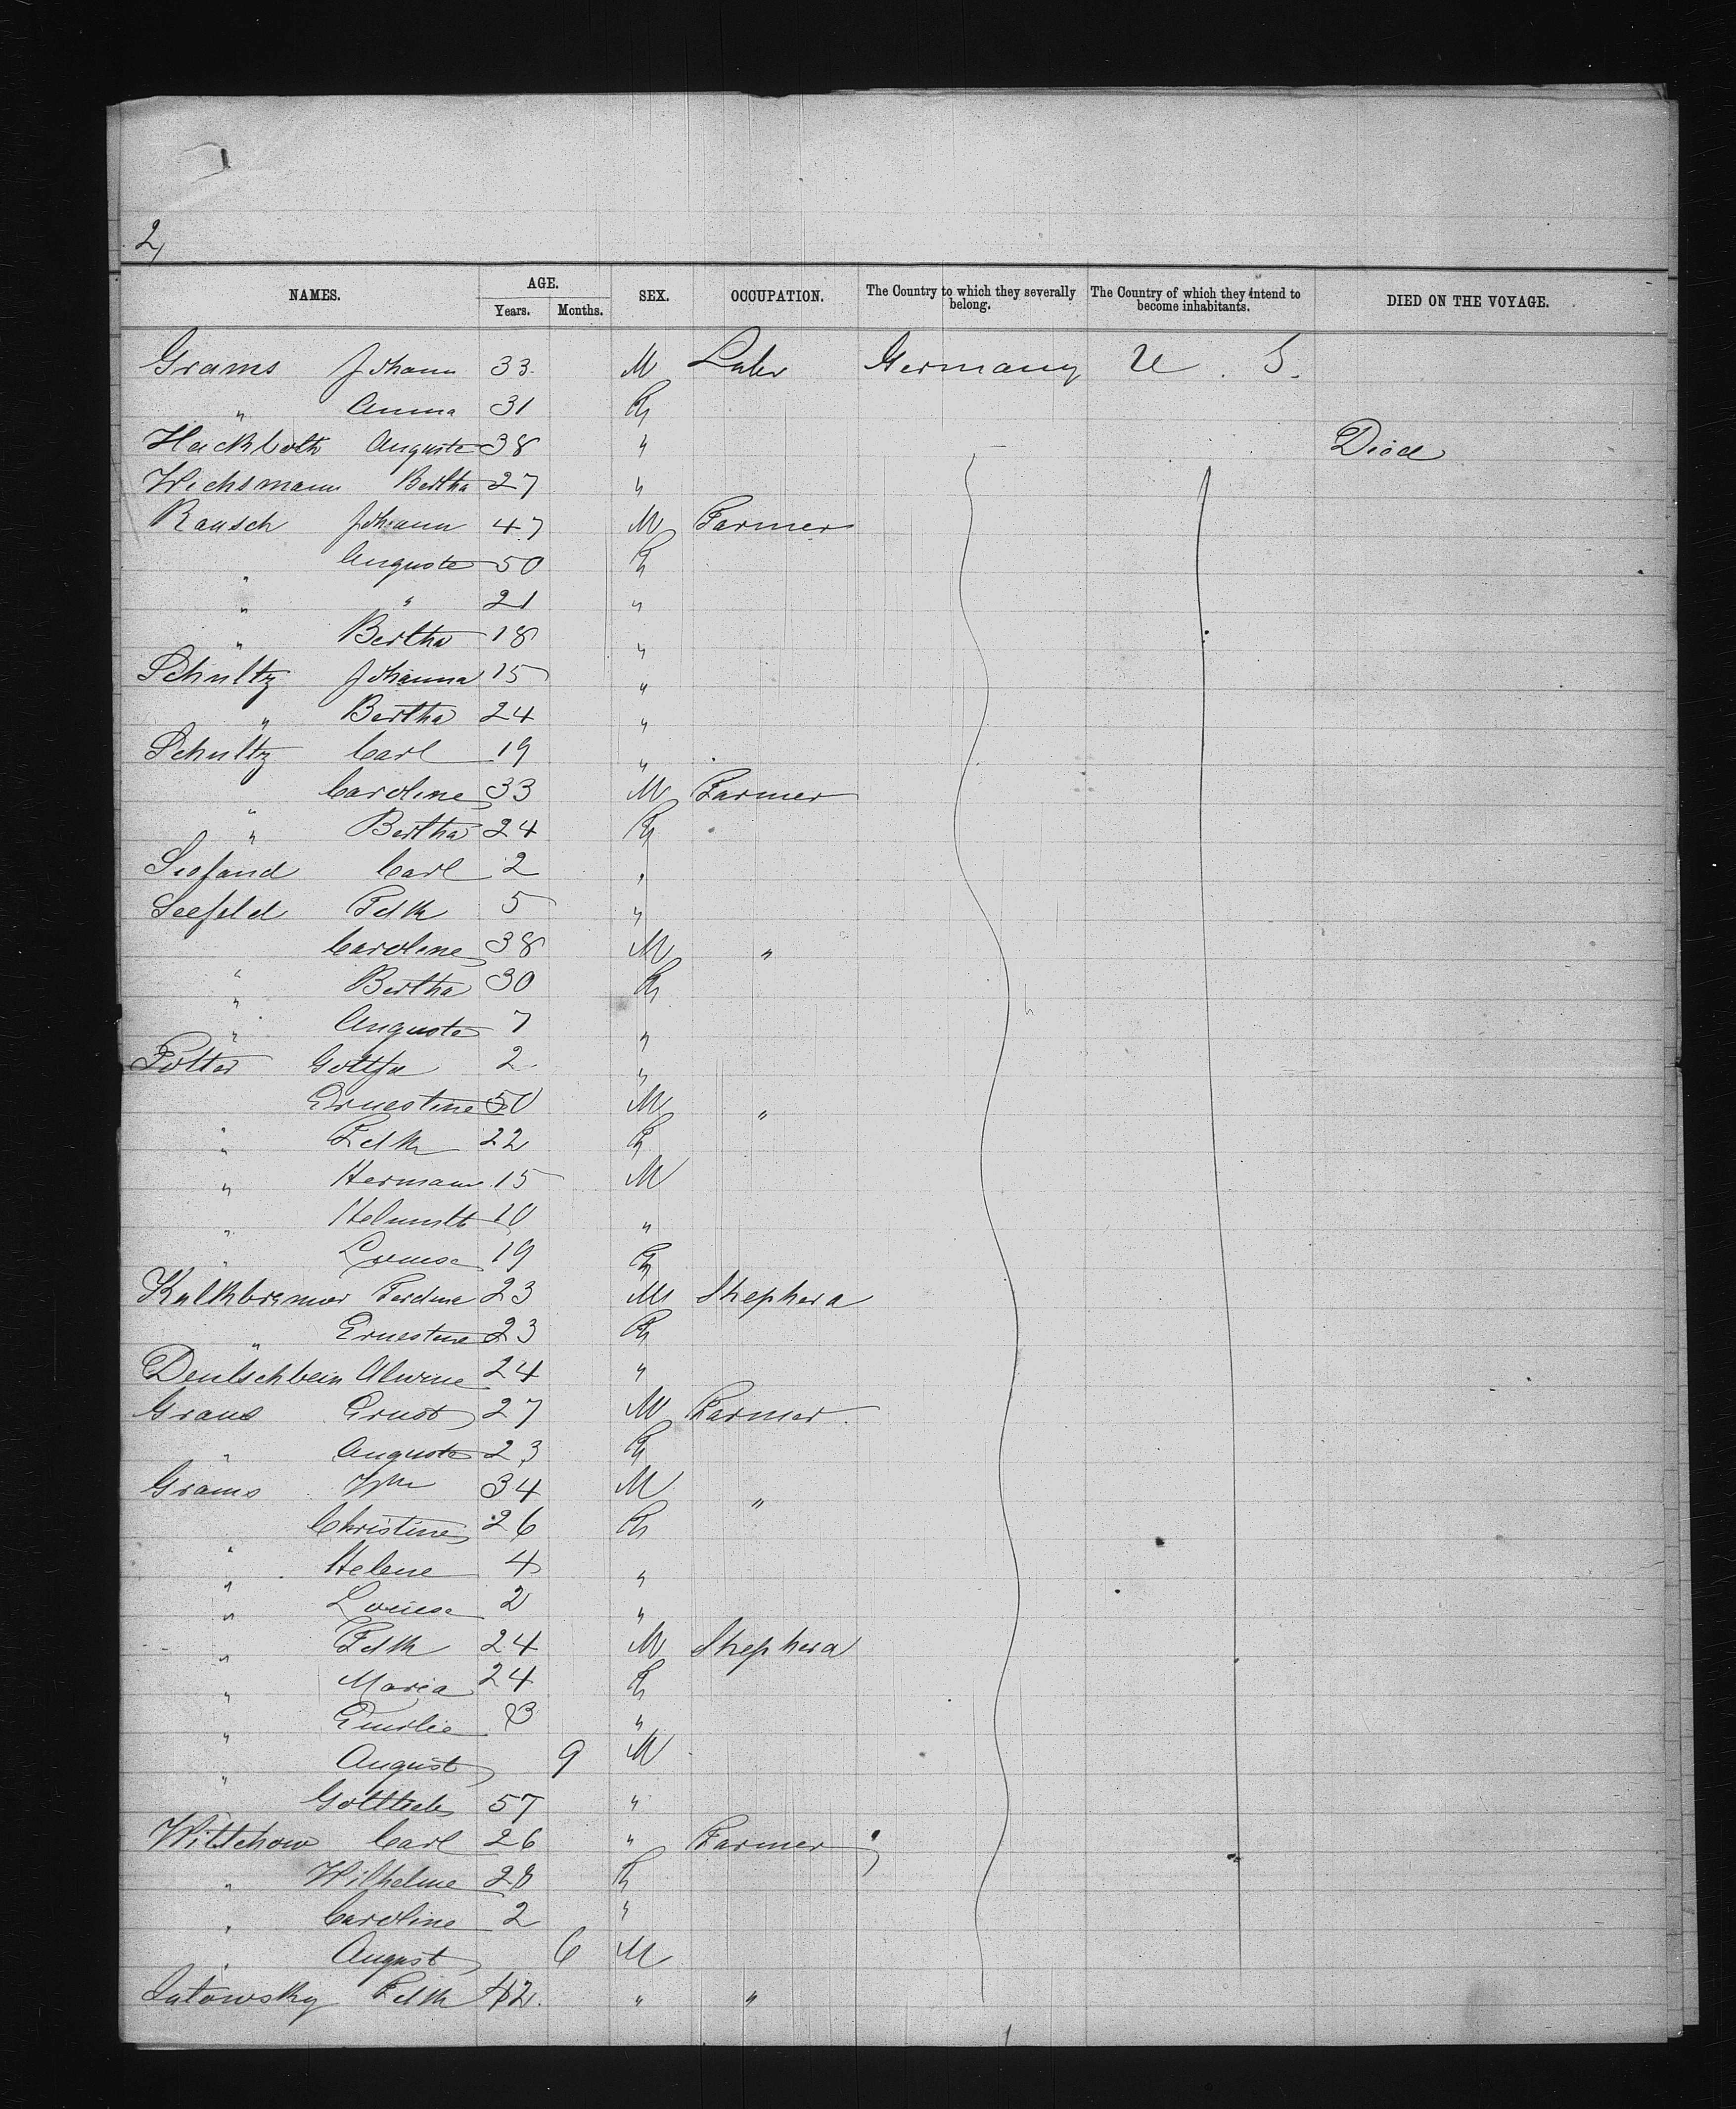 2,
NAMES. AGE. SEX. OCCUPATION. The Country to which they severally belong. The Country of which they intend to become inhabitants. DIED ON THE VOYAGE.
Years. Months.
Grams Johann 33 M Labr Germany U. S.
" Anna 31 F
Auguste 38 " Died
Wichsmann Bertha 27 "
Rausch Johann 47 M Farmer
" Auguste 50 F
" " 21 "
" Bertha 18 "
Schultz Johanna 15 "
" Bertha 24 "
Schultz Carl 19 "
" Caroline 33 M Farmer
" Bertha 24 F
Carl 2 "
Seefeld Fdk 5 "
" Caroline 38 M "
" Bertha 30 F
" Auguste 7 "
2 "
Ernestine 50 M "
" Fdk 22 F
" Hermann 15 M
" 10 "
" Louise 19 F
23 M
" Ernestine 23 F
Deutschbein Alwine 24 "
Ernst 27 M Farmer
" Auguste 23 F
Grams Wm 34 M "
" Christine 26 F
" Helene 4 "
" Louise 2 "
" Fdk 24 M
" Maria 24 F
" Emilie 3 "
" August 9 M
" Gottlieb 57 "
Wittchow Carl 26 " Farmer
" Wilhelme 28 F
" Caroline 2 "
" August 6 M
Fdk 42 " "